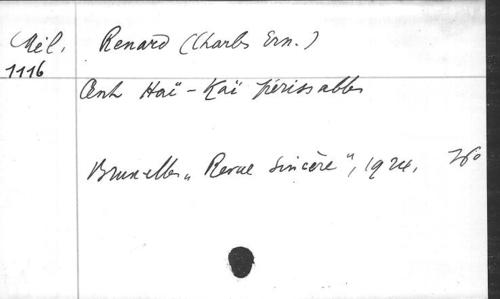 Mél. Renard (Charles Ern.)
1116
Cent Haï-Kaï périssables
Bruxelles „Revue Sincère", 1924.